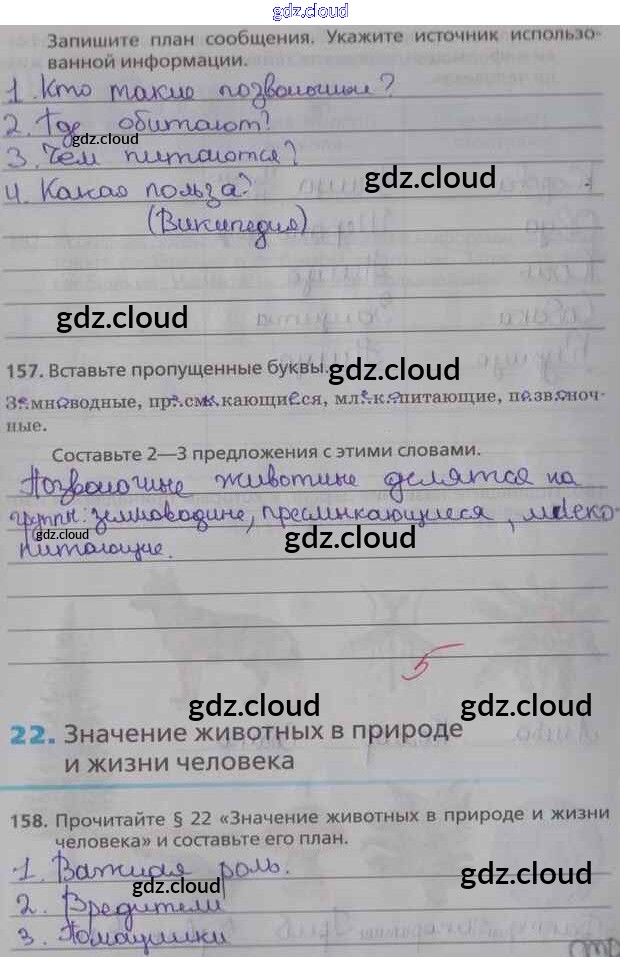 gdz.cloud
Запишите план сообщения. Укажите источник использо-
ванной информации.
1. Кто такие позвоночные?
2. Где обитают?
gdz.cloud
3. Чем питаются?
gdz.cloud
4. Какая польза?
(Википедия)
gdz.cloud
157. Вставьте пропущенные буквы.
gdz.cloud
Земноводные, пресмыкающиеся, млекопитающие, позвоноч-
ные.
Составьте 2—3 предложения с этими словами.
Позвоночные животные делятся на
группы: земноводные, пресмыкающиеся, млеко-
gdz.cloud
gdz.cloud
питающие.
5
gdz.cloud
gdz.cloud
22. Значение животных в природе
и жизни человека
158. Прочитайте § 22 «Значение животных в природе и жизни
человека» и составьте его план.
1. Важная роль.
gdz.cloud
gdz.cloud
2. Вредители
3. Домашники